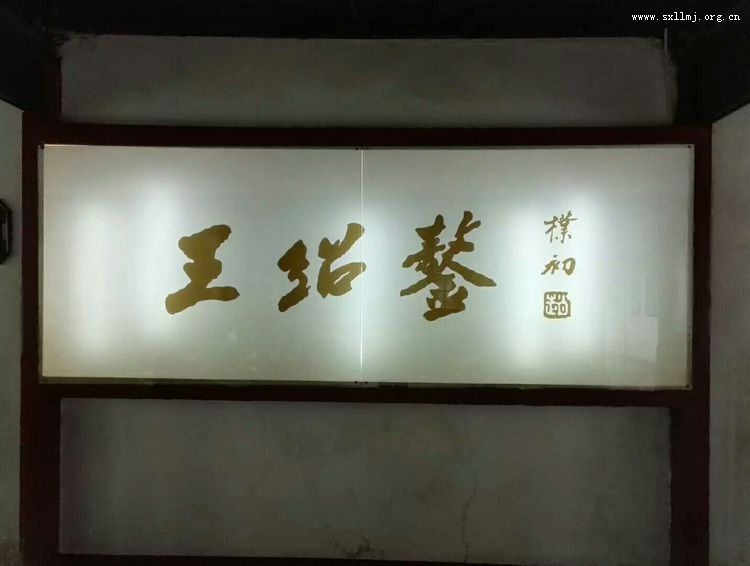 www.sxllmj.org.cn
王绍鏊
樸初